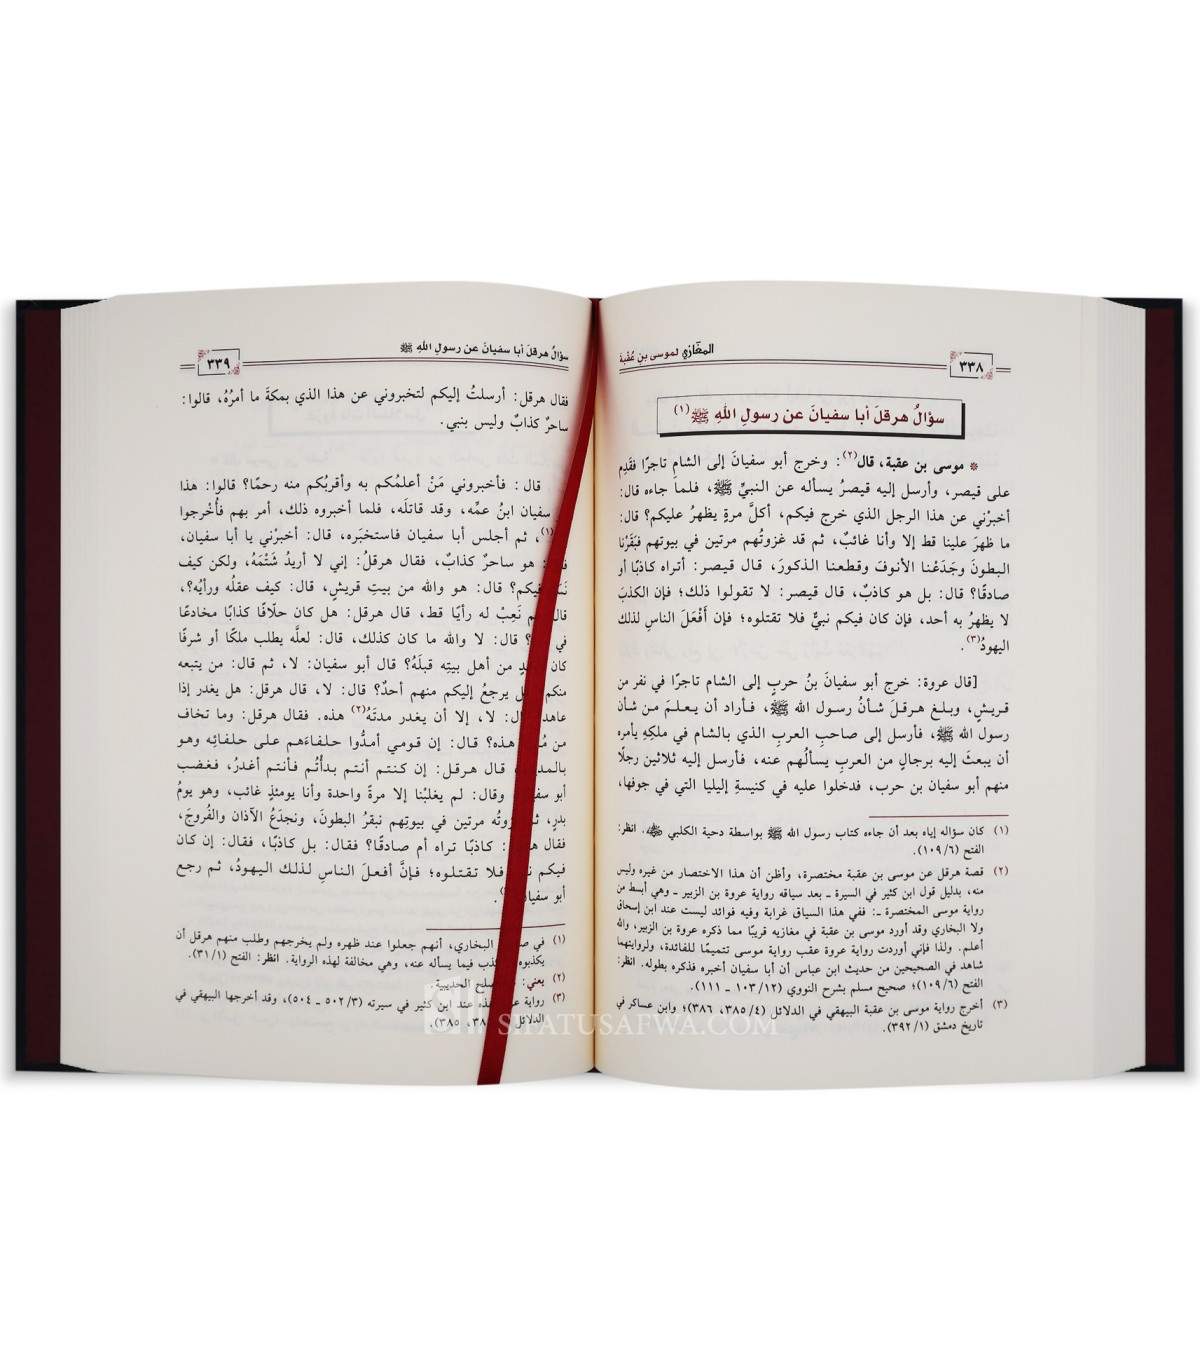 المغازي لموسى بن عُقبة
٣٣٨
سؤالُ هرقلَ أبا سفيانَ عن رسولِ اللهِ ﷺ (١)
* موسى بن عقبة، قال(٢): وخرج أبو سفيانَ إلى الشامِ تاجرًا فقَدِم
على قيصر، وأرسل إليه قيصرُ يسأله عن النبيِّ ﷺ، فلما جاءه قال:
أخبرْني عن هذا الرجل الذي خرج فيكم، أكلَّ مرةٍ يظهرُ عليكم؟ قال:
ما ظهرَ علينا قط إلا وأنا غائبٌ، ثم قد غزوتُهم مرتين في بيوتهم فبَقَرْنا
البطونَ وجَدَعْنا الأنوفَ وقطعنا الذكورَ، قال قيصر: أتراه كاذبًا أو
صادقًا؟ قال: بل هو كاذبٌ، قال قيصر: لا تقولوا ذلك؛ فإن الكذبَ
لا يظهرُ به أحد، فإن كان فيكم نبيٌّ فلا تقتلوه؛ فإن أَفْعَلَ الناسِ لذلك
اليهودُ(٣).
[قال عروة: خرج أبو سفيانَ بنُ حربٍ إلى الشام تاجرًا في نفر من
قريشٍ، وبلغ هرقلَ شأنُ رسول الله ﷺ، فأراد أن يعلمَ من شأن
رسول الله ﷺ، فأرسل إلى صاحبِ العربِ الذي بالشام في ملكِهِ يأمره
أن يبعثَ إليه برجالٍ من العربِ يسألُهم عنه، فأرسل إليه ثلاثين رجلًا
منهم أبو سفيان بن حرب، فدخلوا عليه في كنيسةِ إيليا التي في جوفها،
(١) كان سؤاله إياه بعد أن جاءه كتاب رسول الله ﷺ بواسطة دحية الكلبي. انظر:
الفتح (١٠٩/٦).
(٢) قصة هرقل عن موسى بن عقبة مختصرة، وأظن أن هذا الاختصار من غيره وليس
منه، بدليل قول ابن كثير في السيرة ـ بعد سياقه رواية عروة بن الزبير ـ وهي أبسط من
رواية موسى المختصرة ـ: ففي هذا السياق غرابة وفيه فوائد ليست عند ابن إسحاق
ولا البخاري وقد أورد موسى بن عقبة في مغازيه قريبًا مما ذكره عروة بن الزبير، والله
أعلم. ولذا فإني أوردت رواية عروة عقب رواية موسى تتميمًا للفائدة، ولروايتهما
شاهد في الصحيحين من حديث ابن عباس أن أبا سفيان أخبره فذكره بطوله. انظر:
الفتح (١٠٩/٦)؛ صحيح مسلم بشرح النووي (١٠٣/١٢ ـ ١١١).
(٣) أخرج رواية موسى بن عقبة البيهقي في الدلائل (٣٨٥/٤، ٣٨٦)؛ وابن عساكر في
تاريخ دمشق (٣٩٢/١).
سؤالُ هرقلَ أبا سفيانَ عن رسولِ اللهِ ﷺ
٣٣٩
فقال هرقل: أرسلتُ إليكم لتخبروني عن هذا الذي بمكةَ ما أمرُهُ، قالوا:
ساحرٌ كذابٌ وليس بنبي.
قال: فأخبروني مَنْ أعلمُكم به وأقربُكم منه رحمًا؟ قالوا: هذا
سفيان ابنُ عمِّه، وقد قاتلَه، فلما أخبروه ذلك، أمر بهم فأُخْرجوا
(١)، ثم أجلس أبا سفيان فاستخبَره، قال: أخبرْني يا أبا سفيان،
هو ساحرٌ كذابٌ، فقال هرقلُ: إني لا أريدُ شَتْمَهُ، ولكن كيف
فيكم؟ قال: هو والله من بيتِ قريشٍ، قال: كيف عقلُه ورأيُه؟،
نَعِبْ له رأيًا قط، قال هرقل: هل كان حلّافًا كذابًا مخادعًا
في قال: لا والله ما كان كذلك، قال: لعلَّه يطلب ملكًا أو شرفًا
كان من أهل بيتِه قبلَهُ؟ قال أبو سفيان: لا، ثم قال: من يتبعه
منكم يرجعُ إليكم منهم أحدٌ؟ قال: لا، قال هرقل: هل يغدر إذا
عاهد لا، إلا أن يغدر مدتَهُ(٢) هذه. فقال هرقل: وما تخاف
من هذه؟ قال: إن قومي أمدُّوا حلفاءَهم على حلفائِه وهو
قال هرقل: إن كنتم أنتم بدأتُم فأنتم أغدرُ، فغضب
أبو وقال: لم يغلبْنا إلا مرةً واحدة وأنا يومئذٍ غائب، وهو يومُ
بدرٍ، مرتين في بيوتِهم نبقرُ البطونَ، ونجدَعُ الآذان والفُروجَ،
فقال كاذبًا تراه أم صادقًا؟ فقال: بل كاذبًا، فقال: إن كان
فيكم فلا تقتلوه؛ فإنَّ أفعلَ الناسِ لذلك اليهودُ، ثم رجع
أبو
(١) في البخاري، أنهم جعلوا عند ظهره ولم يخرجهم وطلب منهم هرقل أن
يكذبوه فيما يسأله عنه، وهي مخالفة لهذه الرواية. انظر: الفتح (٣١/١).
(٢) يعني: صلح الحديبية.
(٣) رواية عند ابن كثير في سيرته (٥٠٢/٣ ـ ٥٠٤)، وقد أخرجها البيهقي في
الدلائل ٣٨٥).
SIFATUSAFWA.COM